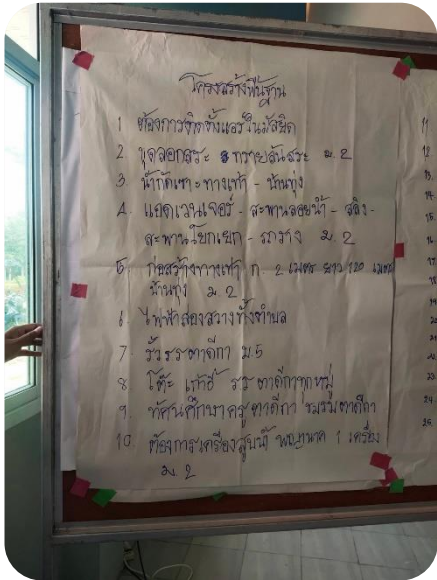 โครงสร้างพื้นฐาน
1 ต้องการติดตั้งแอร์ในมัสยิด
2 ขุดลอกสระ ทรายสันสระ ม.2
3. น้ำกัดเซาะทางเท้า - บ้านทุ่ง
4. แอดเวนเจอร์ - สะพานลอยน้ำ - สลิง -
สะพานโยกเยก - รถราง ม 2
5 ก่อสร้างทางเท้า ก. 2 เมตร ยาว 120 เมตร
บ้านทุ่ง ม 2
6. ไฟฟ้าส่องสว่างทั้งตำบล
7 รั้ว รร ตาดีกา ม5
8 โต๊ะ เก้าอี้ รร ตาดีกาทุกหมู่
9. ทัศนศึกษาครูตาดีกา ชมรมตาดีกา
10. ต้องการเครื่องสูบน้ำ พญานาค 1 เครื่อง
ม. 2
11
12
13.
14
15
16
17
18
19
20
21
22
23
24
25.